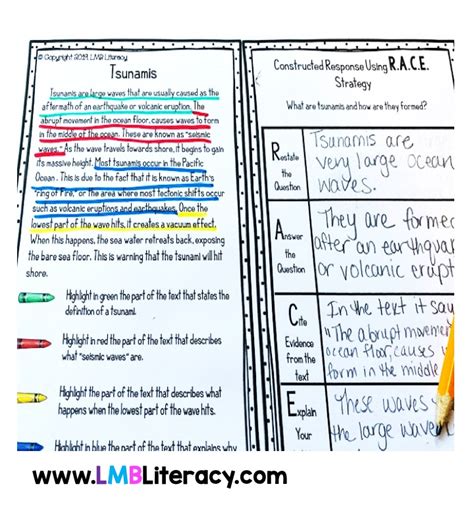 © Copyright 2019, LMB Literacy
Tsunamis
Tsunamis are large waves that are usually caused as the
aftermath of an earthquake or volcanic eruption. The
abrupt movement in the ocean floor, causes waves to form
in the middle of the ocean. These are known as "seismic
waves." As the wave travels towards shore, it begins to gain
its massive height. Most tsunamis occur in the Pacific
Ocean. This is due to the fact that it is known as Earth's
"ring of fire," or the area where most tectonic shifts occur
such as volcanic eruptions and earthquakes. Once the
lowest part of the wave hits, it creates a vacuum effect.
When this happens, the sea water retreats back, exposing
the bare sea floor. This is warning that the tsunami will hit
shore.
Highlight in green the part of the text that states the
definition of a tsunami.
Highlight in red the part of the text that describes
what "seismic waves" are.
Highlight the part of the text that describes what
happens when the lowest part of the wave hits.
Highlight in blue the part of the text that explains why
Constructed Response Using R.A.C.E.
Strategy
What are tsunamis and how are they formed?
Restate
the
Question
Tsunamis are
very large ocean
waves.
Answer
the
Question
They are
after an
or volcanic
Cite
Evidence
from the
text
In the text it
"The abrupt
ocean floor, causes
form in the middle
Explain
Your
These waves
the large
www.LMBLiteracy.com